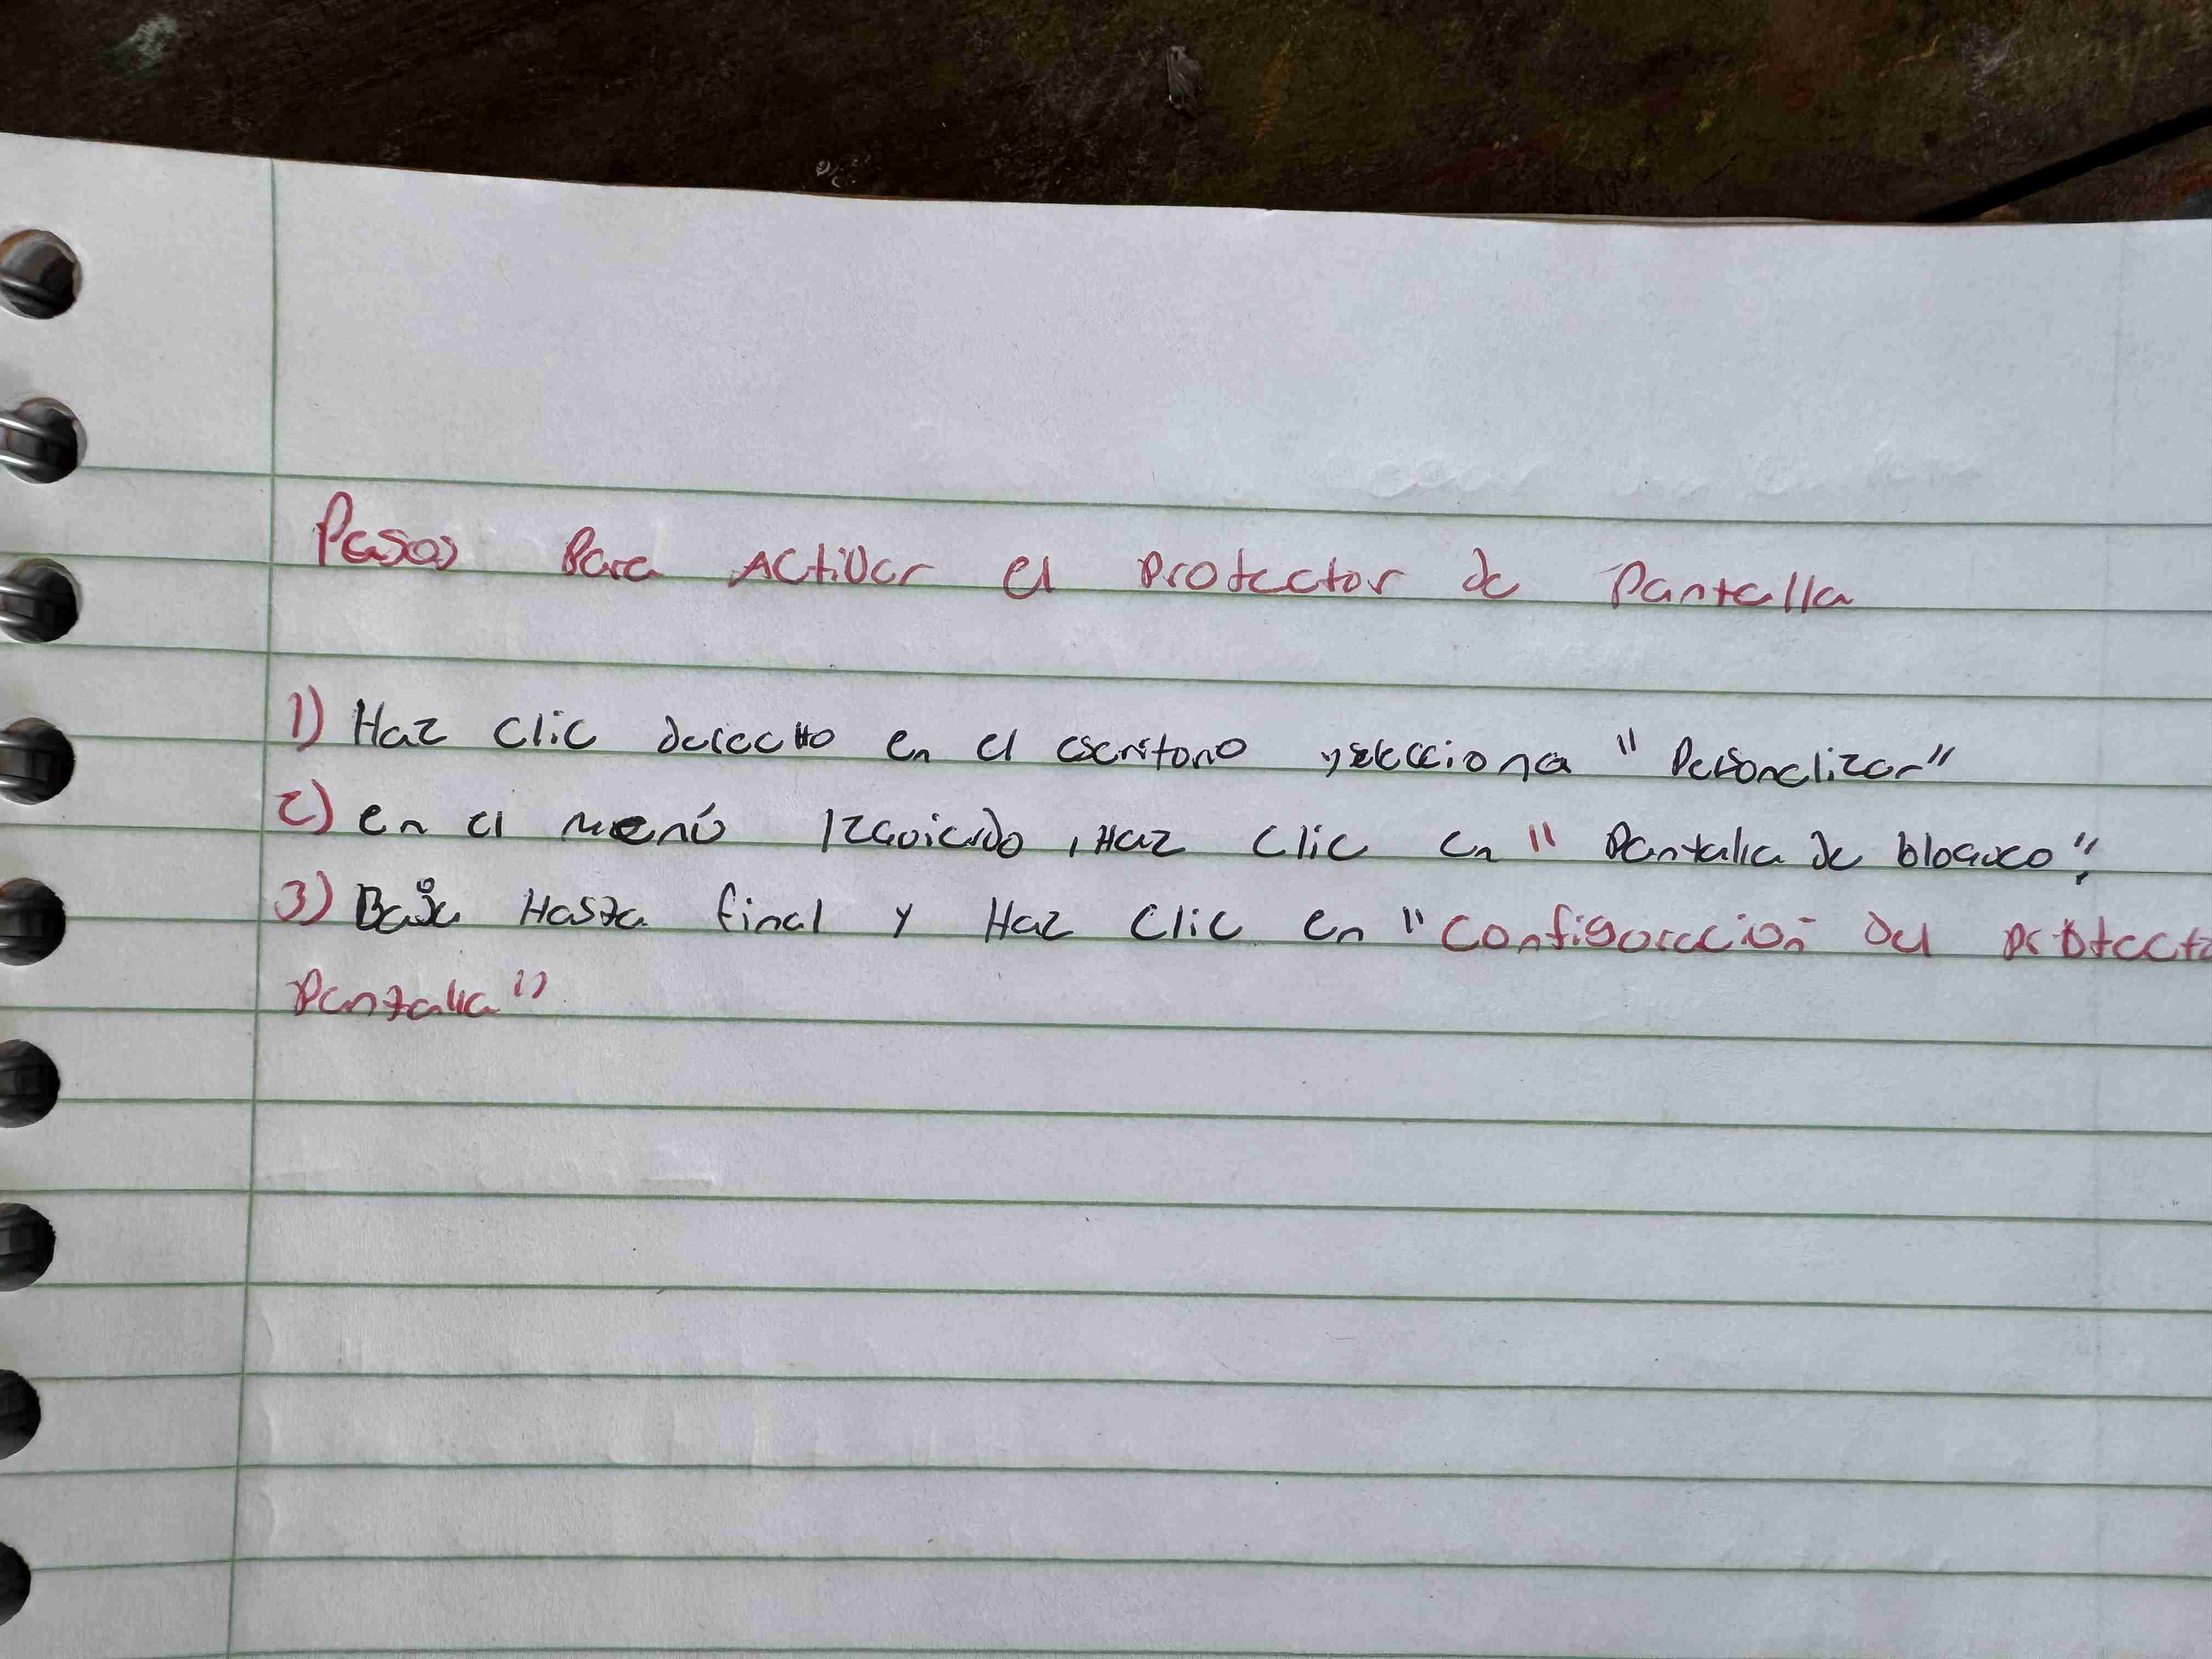 Pasos Para Activar el protector de Pantalla
1) Haz clic derecho en el escritorio y selecciona " Personalizar"
2) en el menú Izquierdo , Haz clic en " Pantalla de bloqueo",
3) Baja Hasta final y Haz clic en "Configuración del protecto
Pantalla"